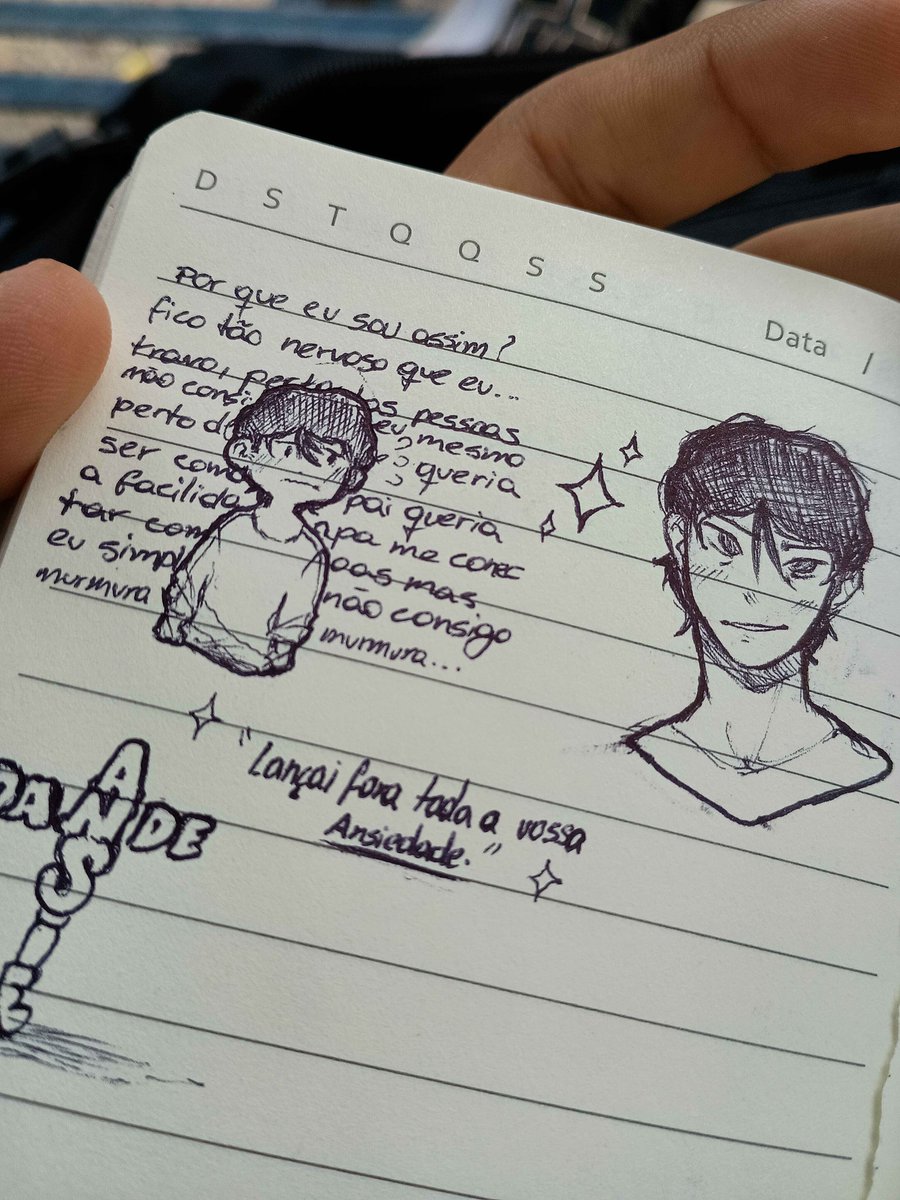 D S T Q Q S S
Data /
Por que eu sou assim?
fico tão nervoso que eu...
travo, perto das pessoas
não consi eu mesmo
perto d ? queria
ser como pai queria
a facilida pa me conec
tar com oas mas
eu simpl não consigo
murmura murmura...
"Lançai fora toda a vossa
Ansiedade."
ANSIE
DADE